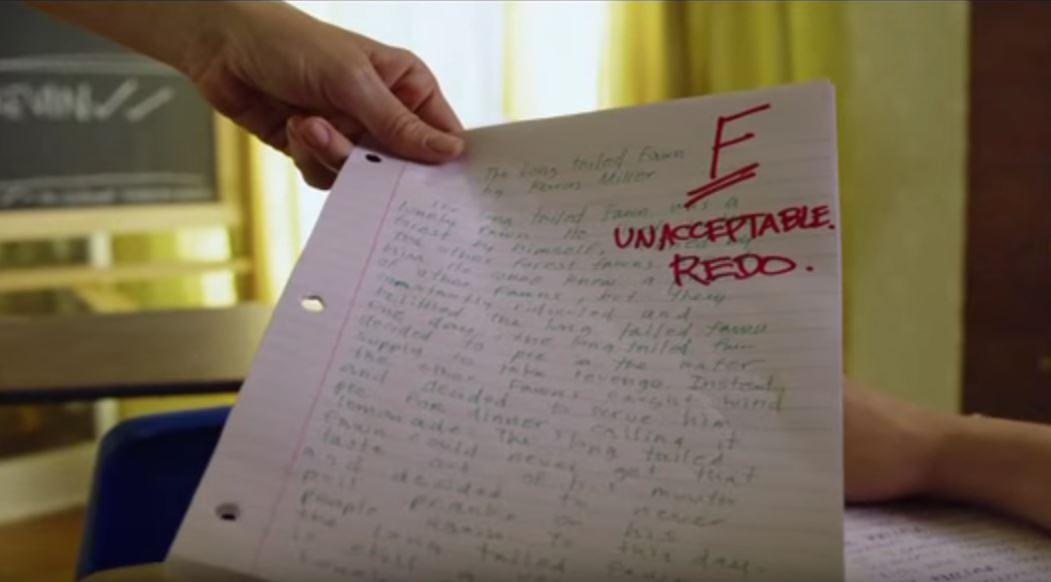 F
UNACCEPTABLE.
REDO.
The long tailed fawn
by Miller
The long tailed fawn was a
lonely fawn. He
forest by himself,
The other forest fawns
him. He once knew a
of other fawns, but they
constantly ridiculed and
belittled the long tailed fawn
One day, the long tailed
decided to pee in the water
supply to take revenge. Instead,
the other fawns caught wind
and decided to serve him
pee for dinner, calling it
lemonade. The long tailed
fawn could never get that
taste out of his mouth
and decided to never
pull pranks on his
people again. To this day,
the long tailed
is still a